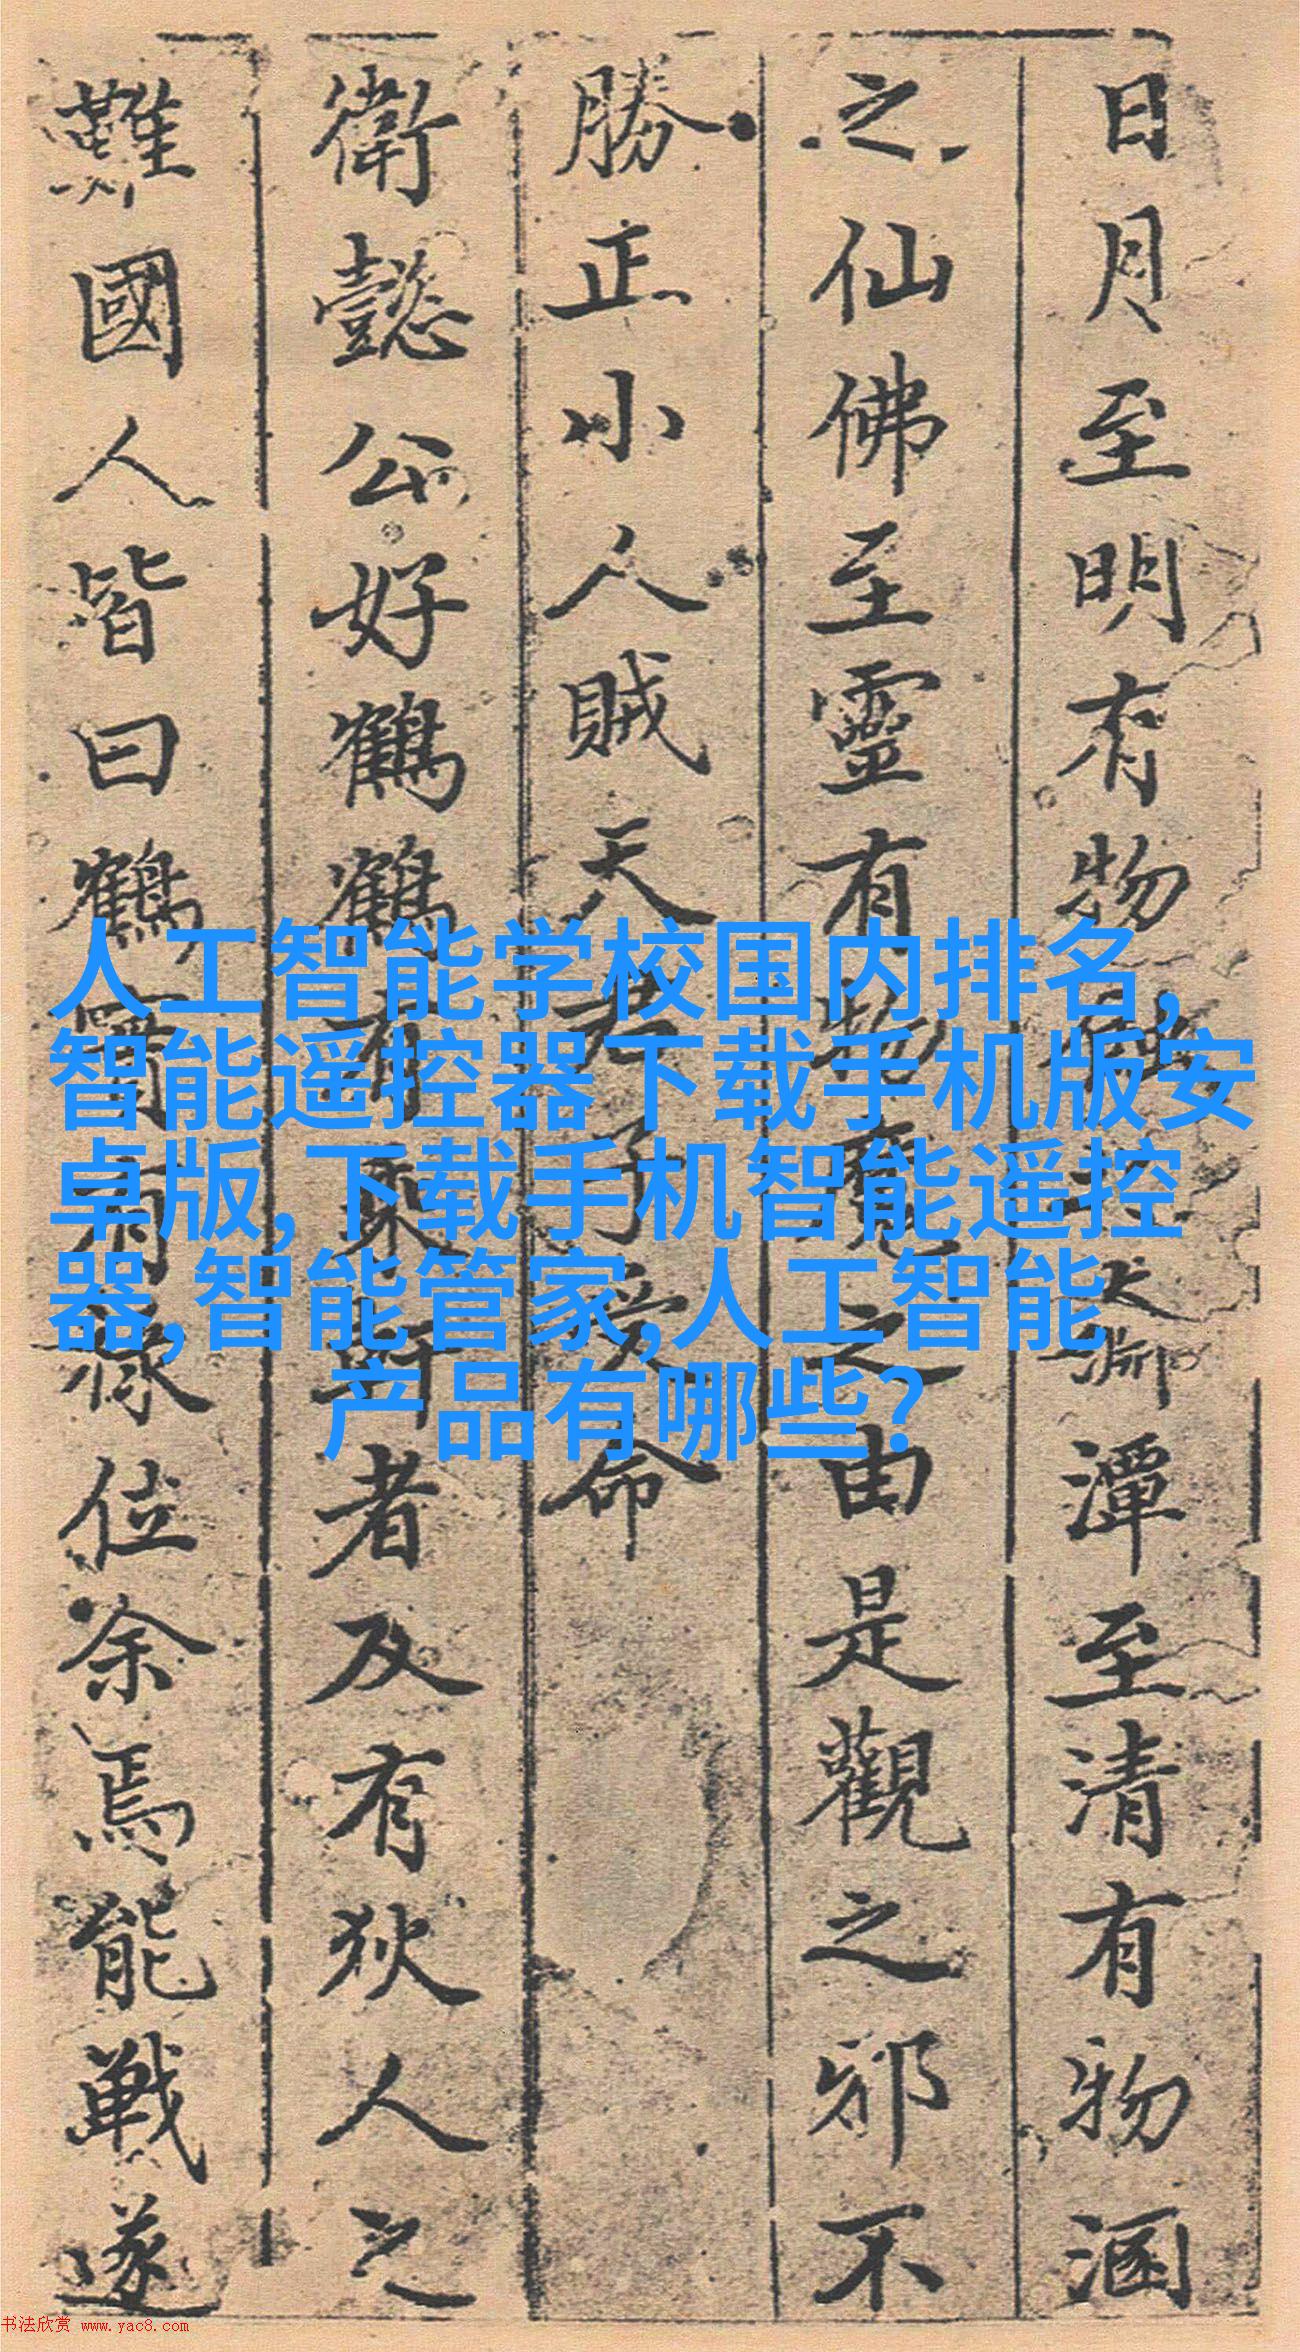 日月至明有物
潭至清有物涵
之仙佛至靈有
之由是觀之邪不
勝正小人賊天君子受命
衛懿公好鶴鶴有乘軒者及有狄人之
難國人皆曰鶴實有祿位余焉能戰遂
人工智能学校国内排名,
智能遥控器下载手机版安
卓版,下载手机智能遥控
器,智能管家,人工智能
产品有哪些?
书法欣赏 www.yac8.com